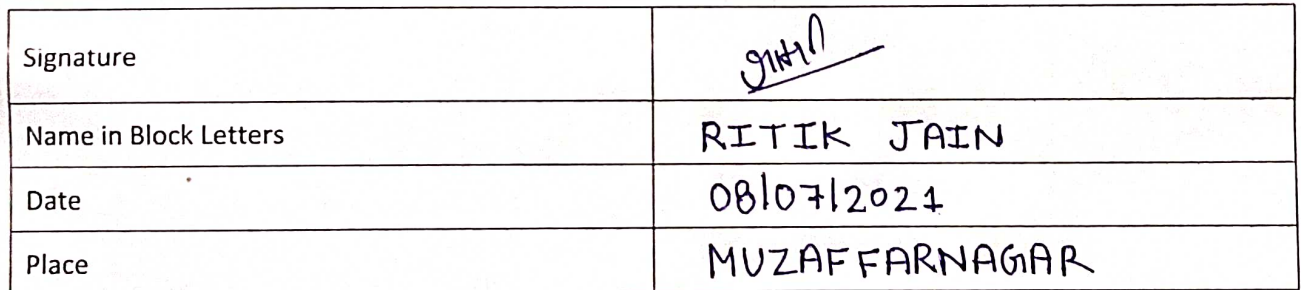 Signature
Name in Block Letters RITIK JAIN
Date 08/07/2021
Place MUZAFFARNAGAR